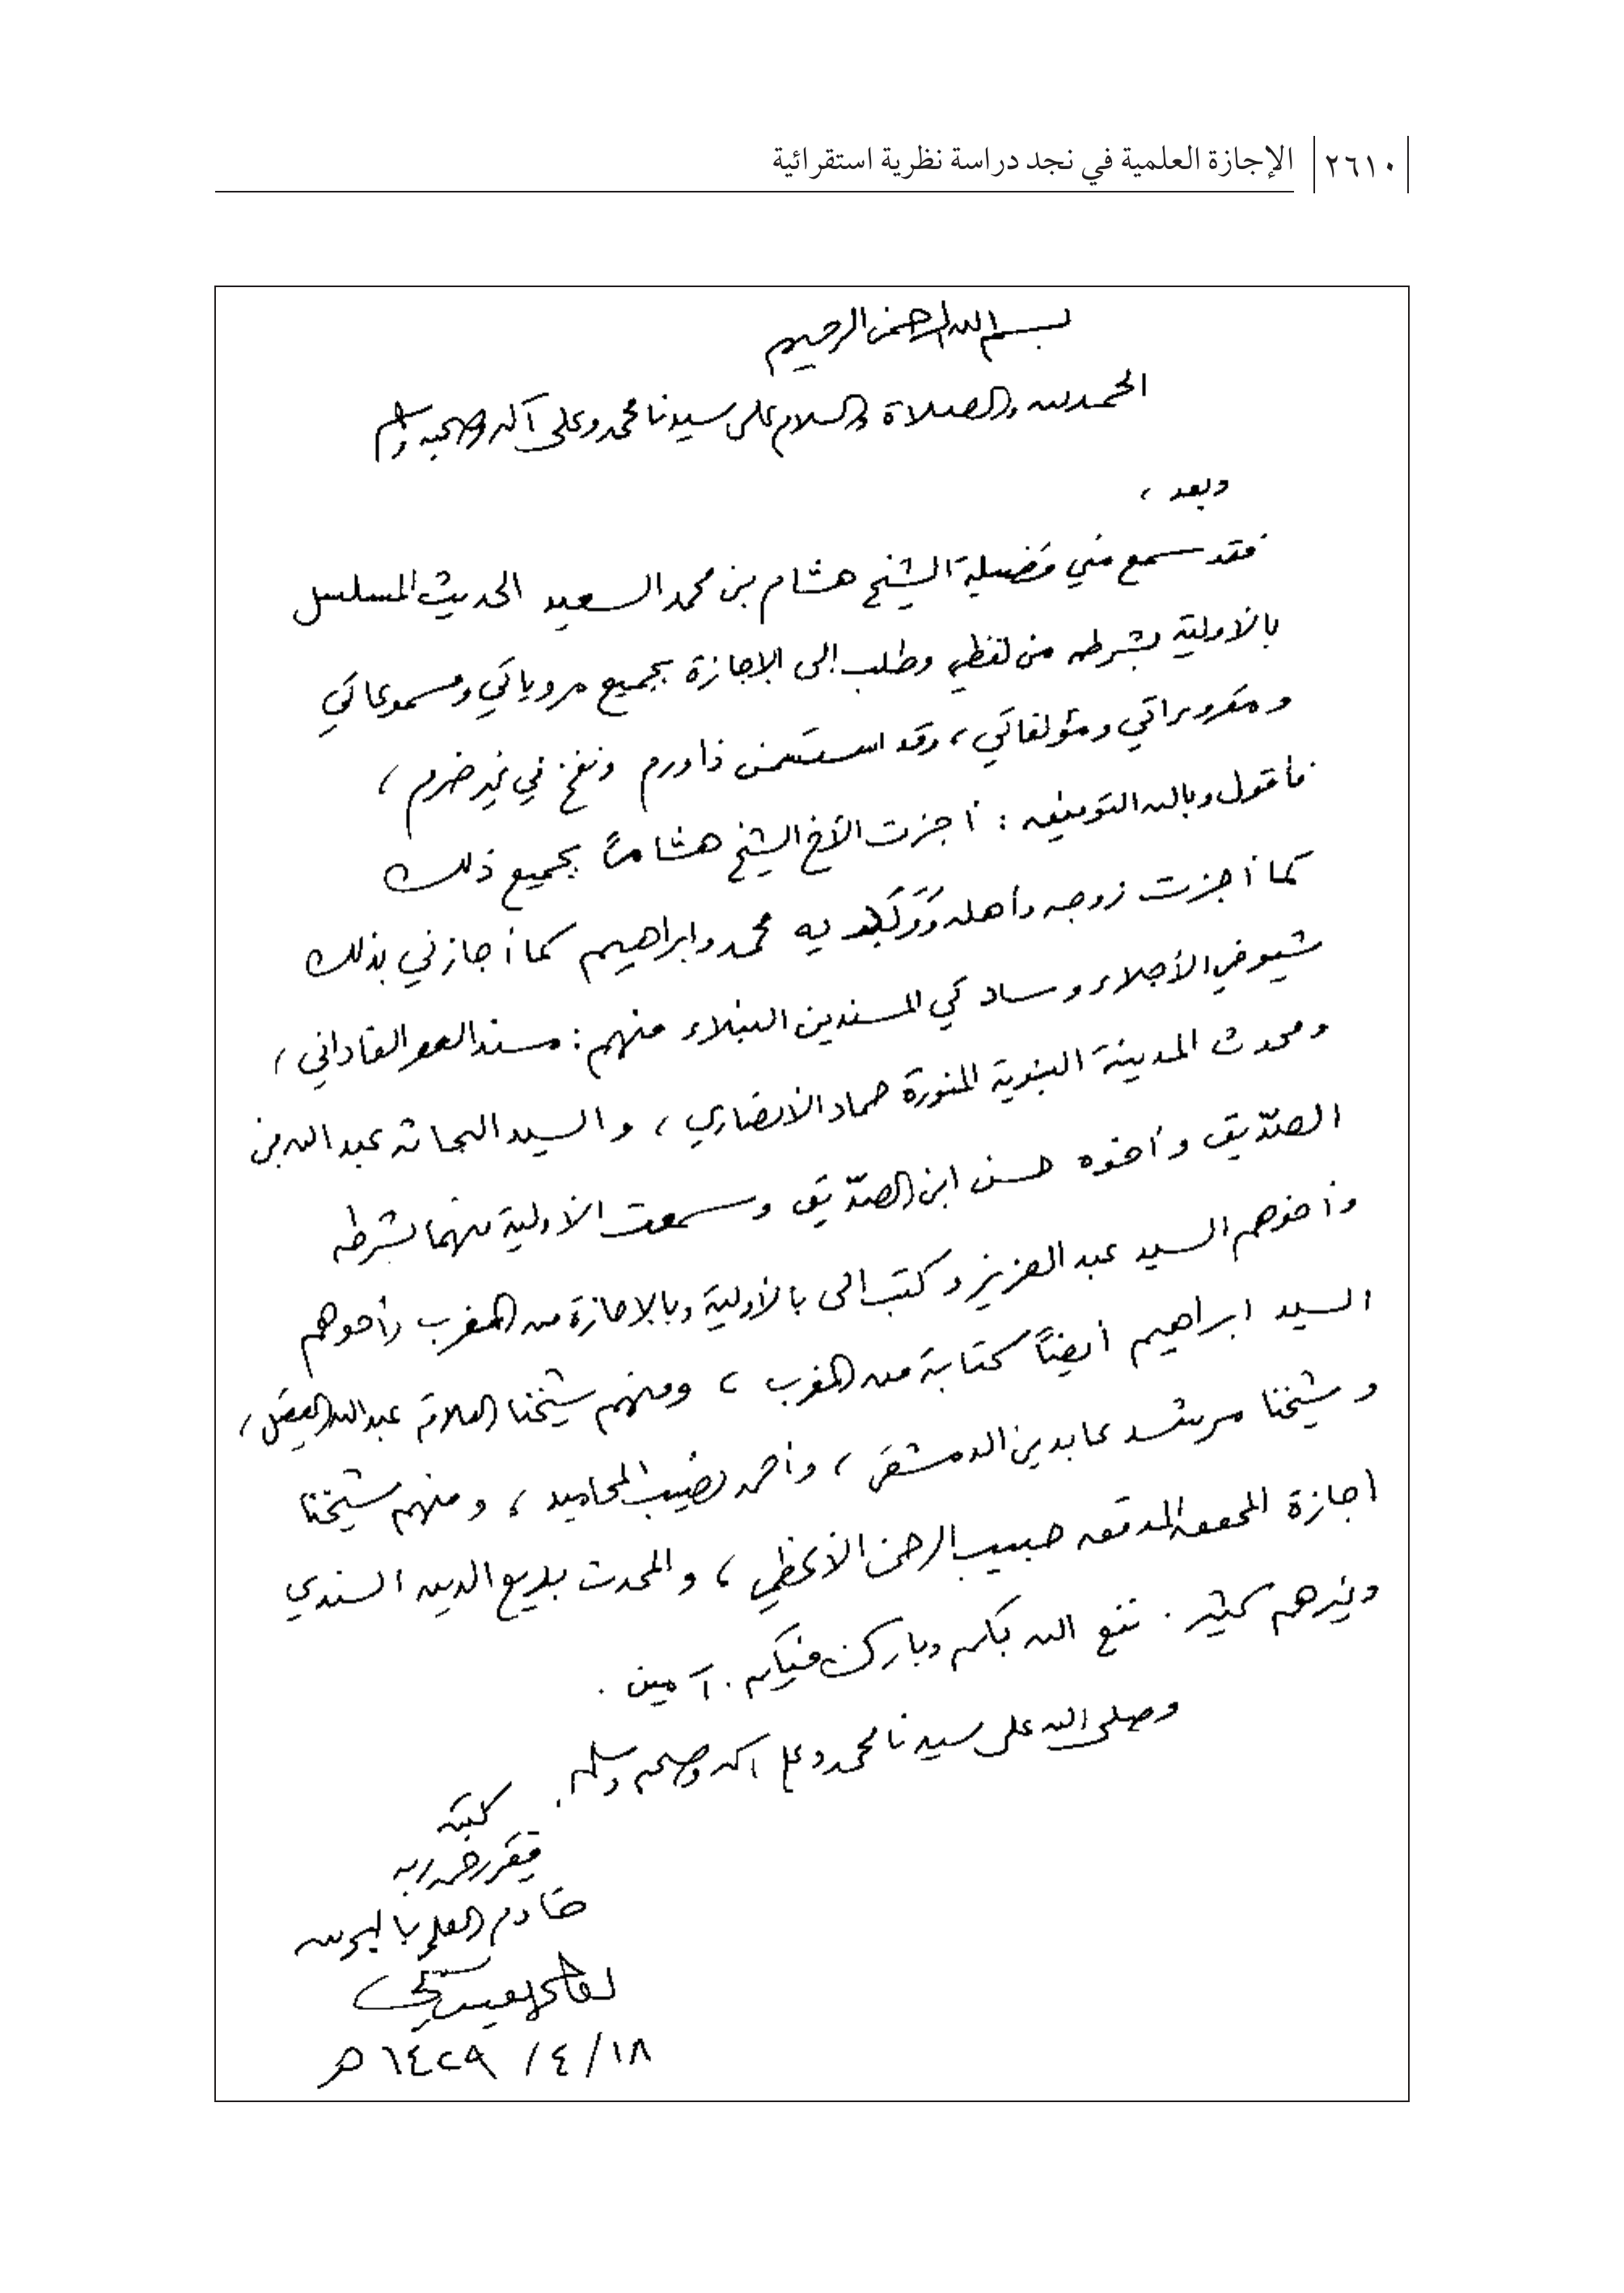 ٢٦١٠ الإجازة العلمية في نجد دراسة نظرية استقرائية
بسم الله الرحمن الرحيم
الحمد لله والصلاة والسلام على سيدنا محمد وعلى آله وصحبه وسلم
وبعد ،
فقد سمع مني فضيلة الشيخ هشام بن محمد السعيد الحديث المسلسل
بالأولية بشرطه من لفظي وطلب إلى الإجازة بجميع مروياتي ومسموعاتي
ومقروءاتي ومؤلفاتي ، وقد استسمن ذا ورم ونفخ في غير ضرم ،
فأقول وبالله التوفيق : أجزت الأخ الشيخ هشاماً بجميع ذلك
كما أجزت زوجه وأهله وَوَلَديه محمد وابراهيم كما أجازني بذلك
شيوخي الأجلاء وساداتي المسندين النبلاء منهم : مسند العصر الفاداني ،
ومحدث المدينة النبوية المنورة حماد الأنصاري ، والسيد البحاثه عبد الله بن
الصدّيق وأخوه حسن ابن الصدّيق وسمعت الأولية منهما بشرطه
وأخوهم السيد عبد العزيز وكتب الى بالأولية وبالإجازة من المغرب وأخوهم
السيد ابراهيم أيضاً كتابة من المغرب ، ومنهم شيخنا العلامة عبد الله
وشيخنا مرشد عابدين الدمشقي ، وأحمد نصيب المحاميد ، ومنهم شيخنا
اجازة المحقق المدقق حبيب الرحمن الأعظمي ، والمحدث بديع الدين السندي
وغيرهم كثير . نفع الله بكم وبارك فيكم . آمين .
وصلى الله على سيدنا محمد وعلى آله وصحبه وسلم .
كتبه
فقير رحمة ربه
خادم العلم بالبحرين
١٨/ ٤/ ١٤٢٩ هـ